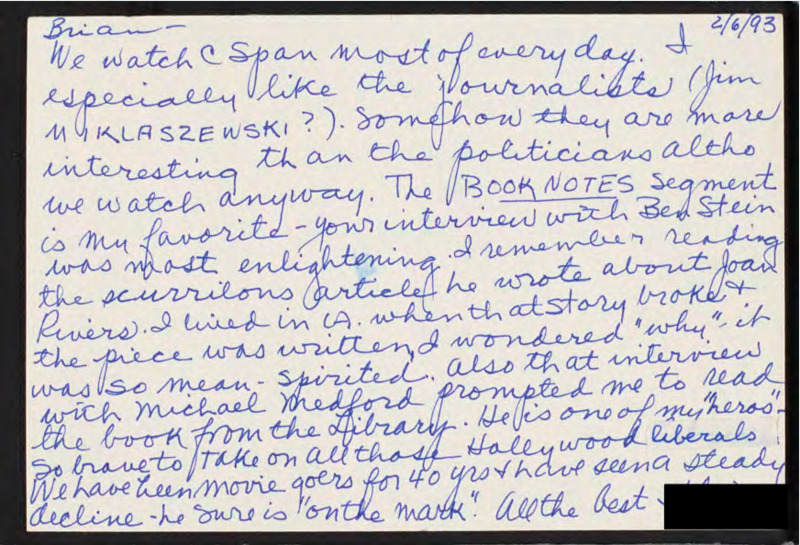 2/6/93
Brian—
We watch C Span most of every day. I
especially like the journalists (Jim
MIKLASZEWSKI?). Somehow they are more
interesting than the politicians altho
we watch anyway. The BOOK NOTES segment
is my favorite - your interview with Ben Stein
was most enlightening. I remember reading
the scurrilous article he wrote about Joan
Rivers. I lived in LA. when that story broke +
the piece was written, I wondered "why" - it
was so "mean-spirited". Also that interview
with Michael Medford prompted me to read
the book from the Library. He is one of my "heros" -
so brave to take on all those Hollywood liberals!
We have been movie goers for 40 yrs + have seen a steady
decline - he sure is "on the mark". All the best -